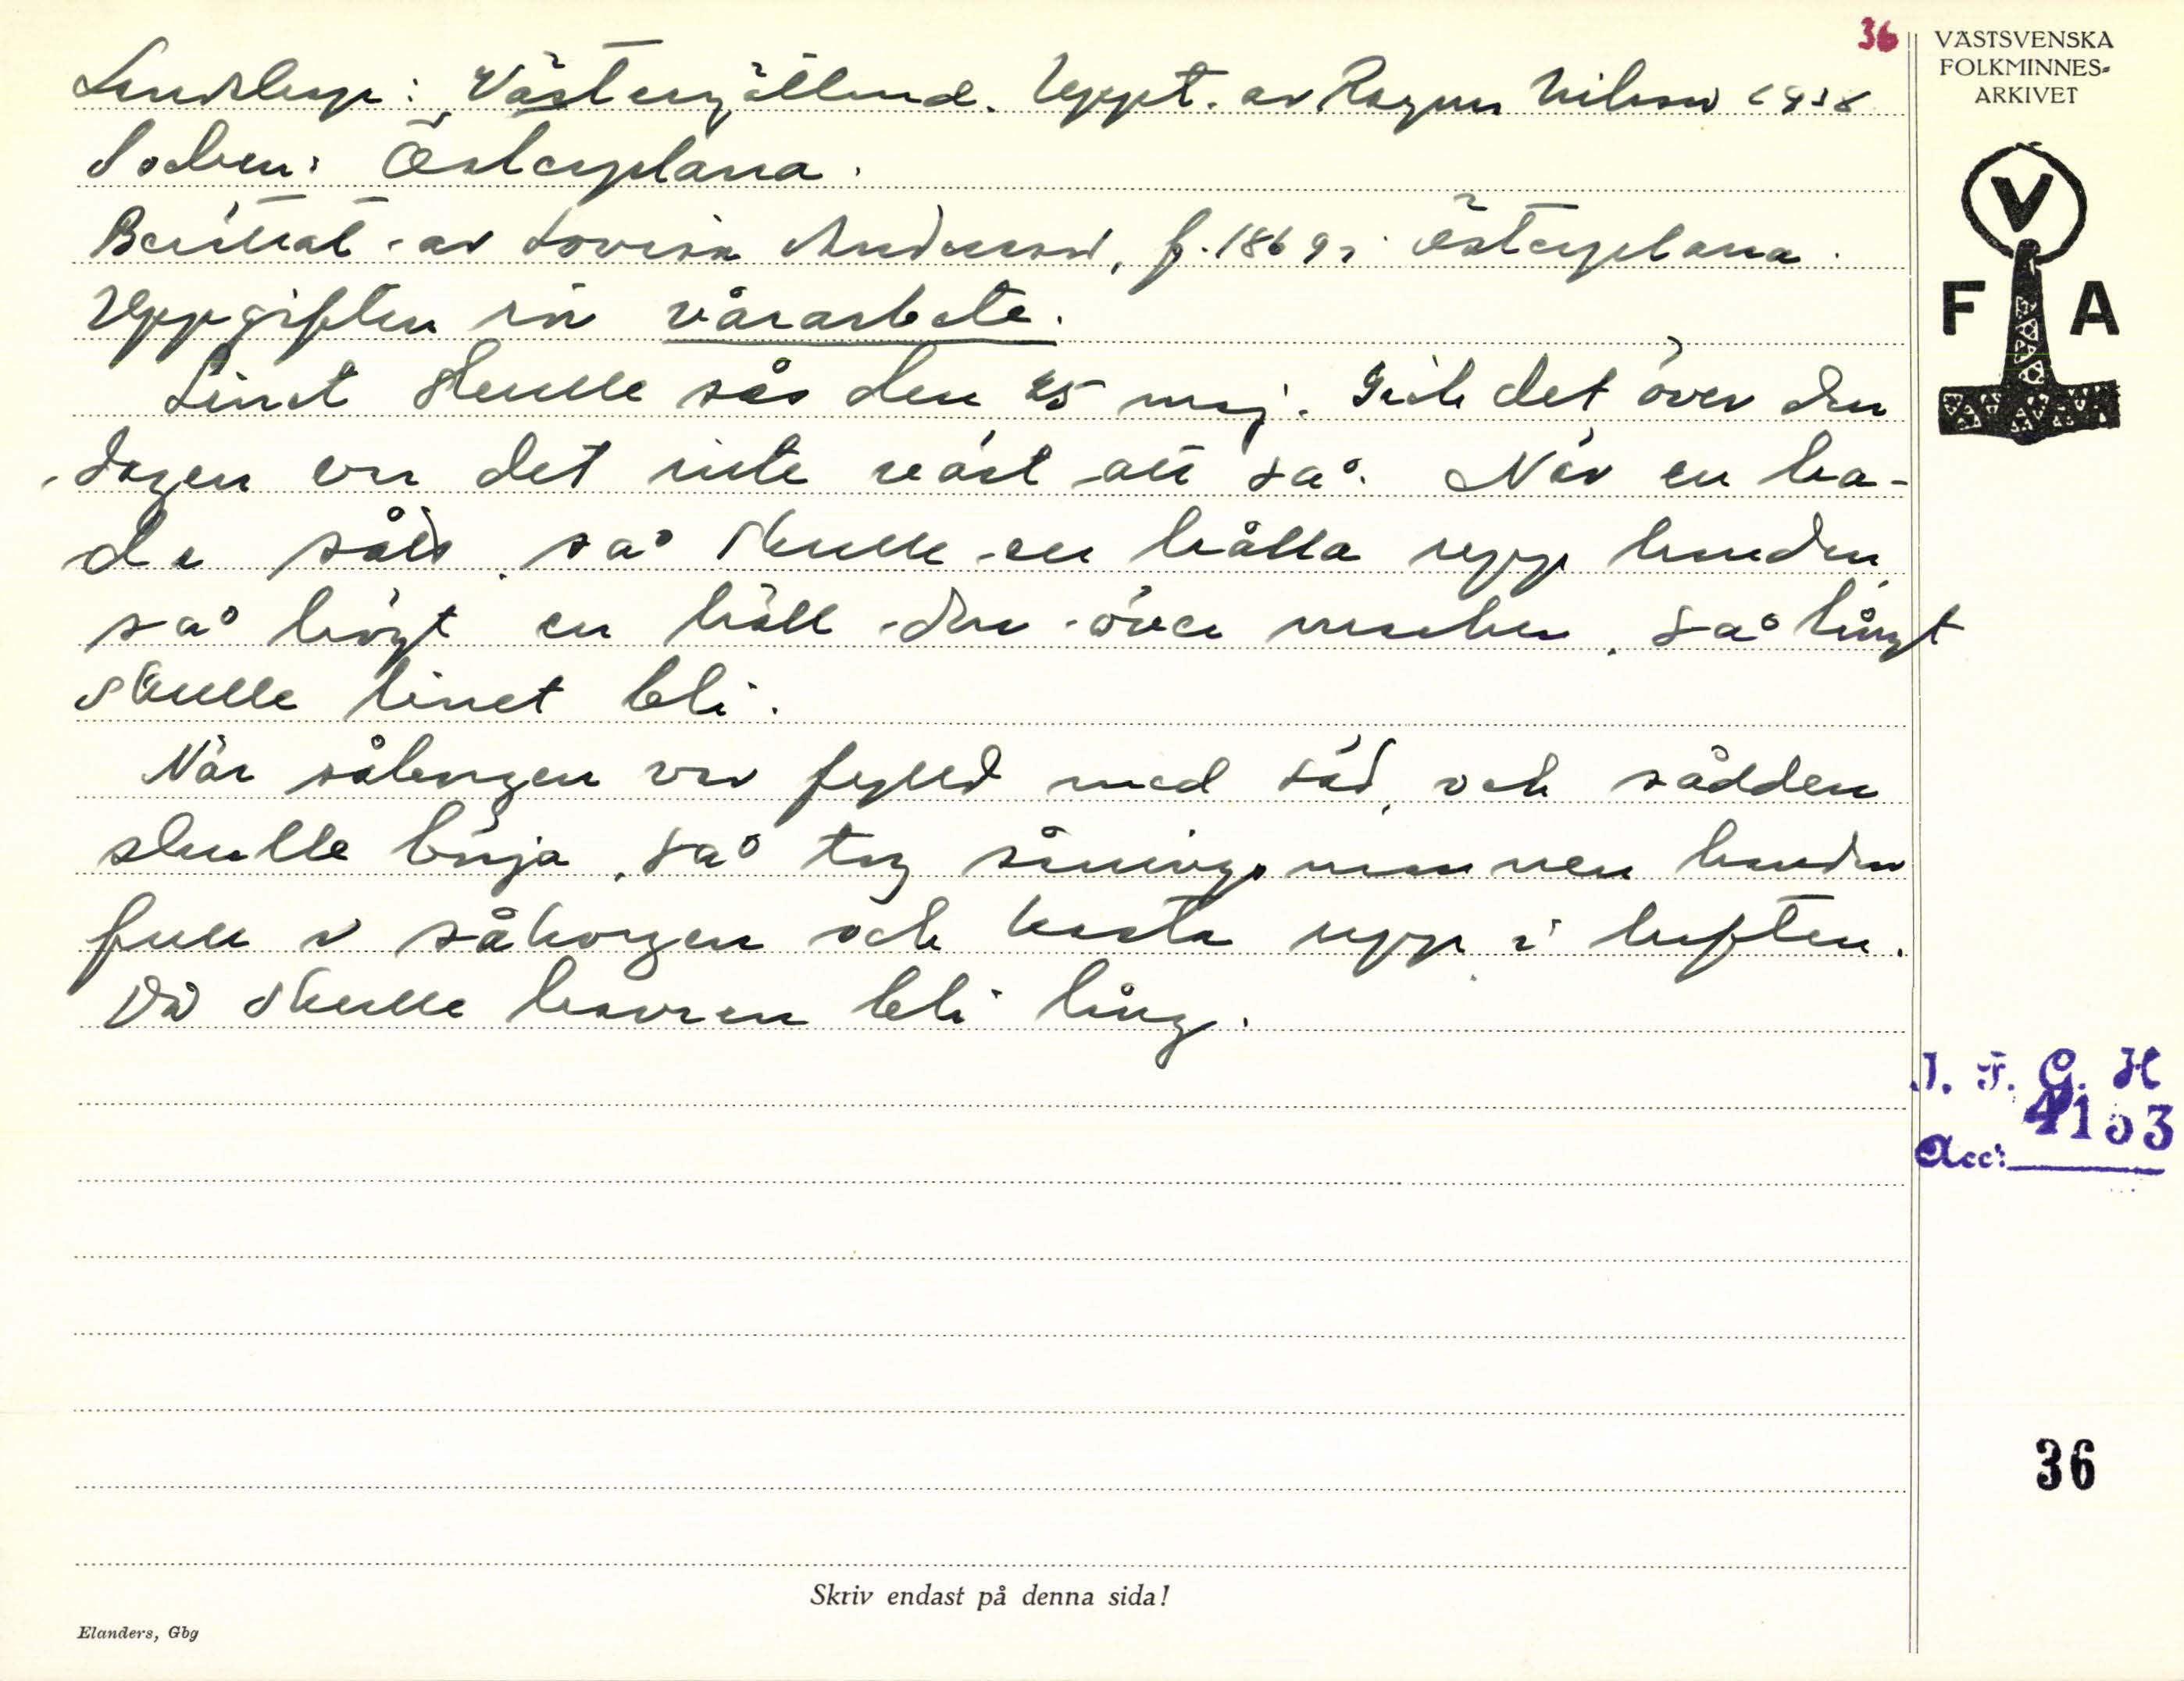 36
VÄSTSVENSKA
FOLKMINNES-
ARKIVET
V
F A
Landskap: Västergötland. Uppt. av Ragnar Nilsson 1938
Socken: Österplana.
Berättat av Lovisa Andersson, f. 1869 i Österplana.
Uppgifter rör vårarbete.
Linet skulle sås den 25 maj. Gick det över den
dagen var det inte värt att så. När en ha-
de sått, så skulle en hålla upp handen,
så högt en höll den över marken, så långt
skulle linet bli.
När såkorgen var fylld med säd, och sådden
skulle börja, så tog såningsmannen handen
full ur såkorgen och kasta upp i luften.
Då skulle havren bli lång.
I. F. G. H
4153
Acc:
36
Skriv endast på denna sida!
Elanders, Gbg